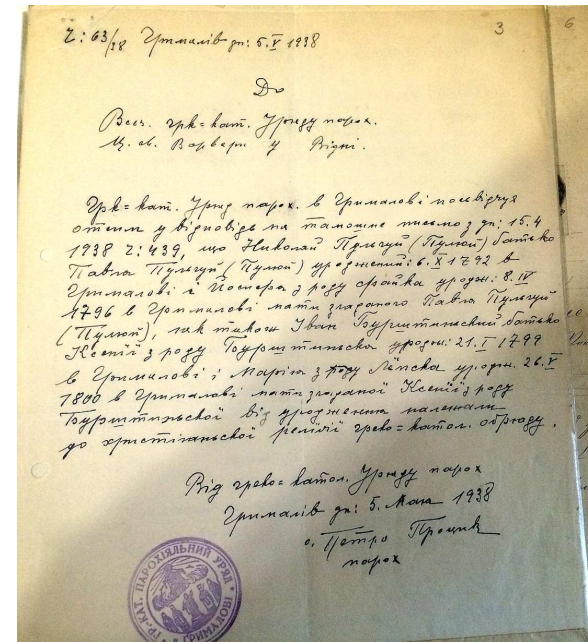 3
6
Ч: 63/38 Грималів дн: 5.V 1938
До
Всеч. грк=кат. Уряду парох.
Ц. св. Варвари у Відні.
Грк=кат. Уряд парох. в Грималові посвідчує
отсим у відповідь на тамошне письмо з дн: 15.4
1938 Ч: 439, що Николай Пульгуй (Пулюй) батько
Павла Пульгуй (Пулюй) уроджений: 6.X 1792 в
Грималові і з роду уродж: 8.IV
1796 в Грималові мати згаданого Павла Пульгуй
(Пулюй), як також Іван Бурштинський батько
Ксенії з роду Бурштинська уродж: 21.I 1799
в Грималові і Марія з роду Ліпска уродж. 26.V
1800 в Грималові мати згаданої Ксенії з роду
Бурштинської від уродження належали
до християнської релігії греко=катол. обряду.
Від греко=катол. Уряду парох
Грималів дн: 5. Мая 1938
о. Петро Процик
парох
ГР.-КАТ. ПАРОХІЯЛЬНИЙ УРЯД
В ГРИМАЛОВІ